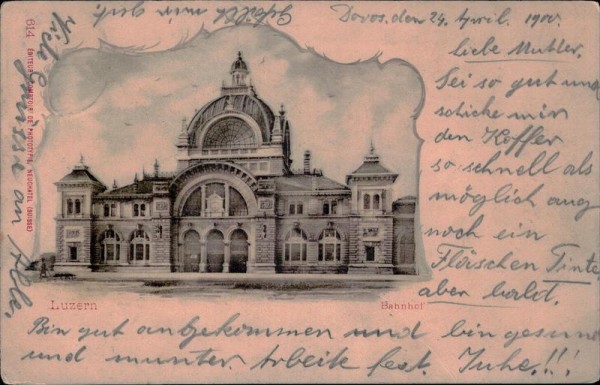 Davos, den 24. April. 1900.
liebe Mutter.
Sei so gut und
schicke mir
den Koffer
so schnell als
möglich auch
noch ein
Fläschen Tinte
aber bald.
Bin gut angekommen und bin gesund
und munter. Arbeite fest. Juhe!!!
Viele Grüsse an Alle,
Gefällt mir gut.
Luzern
Bahnhof
614 EDITEUR COMPTOIR DE PHOTOTYPIE, NEUCHATEL (SUISSE)